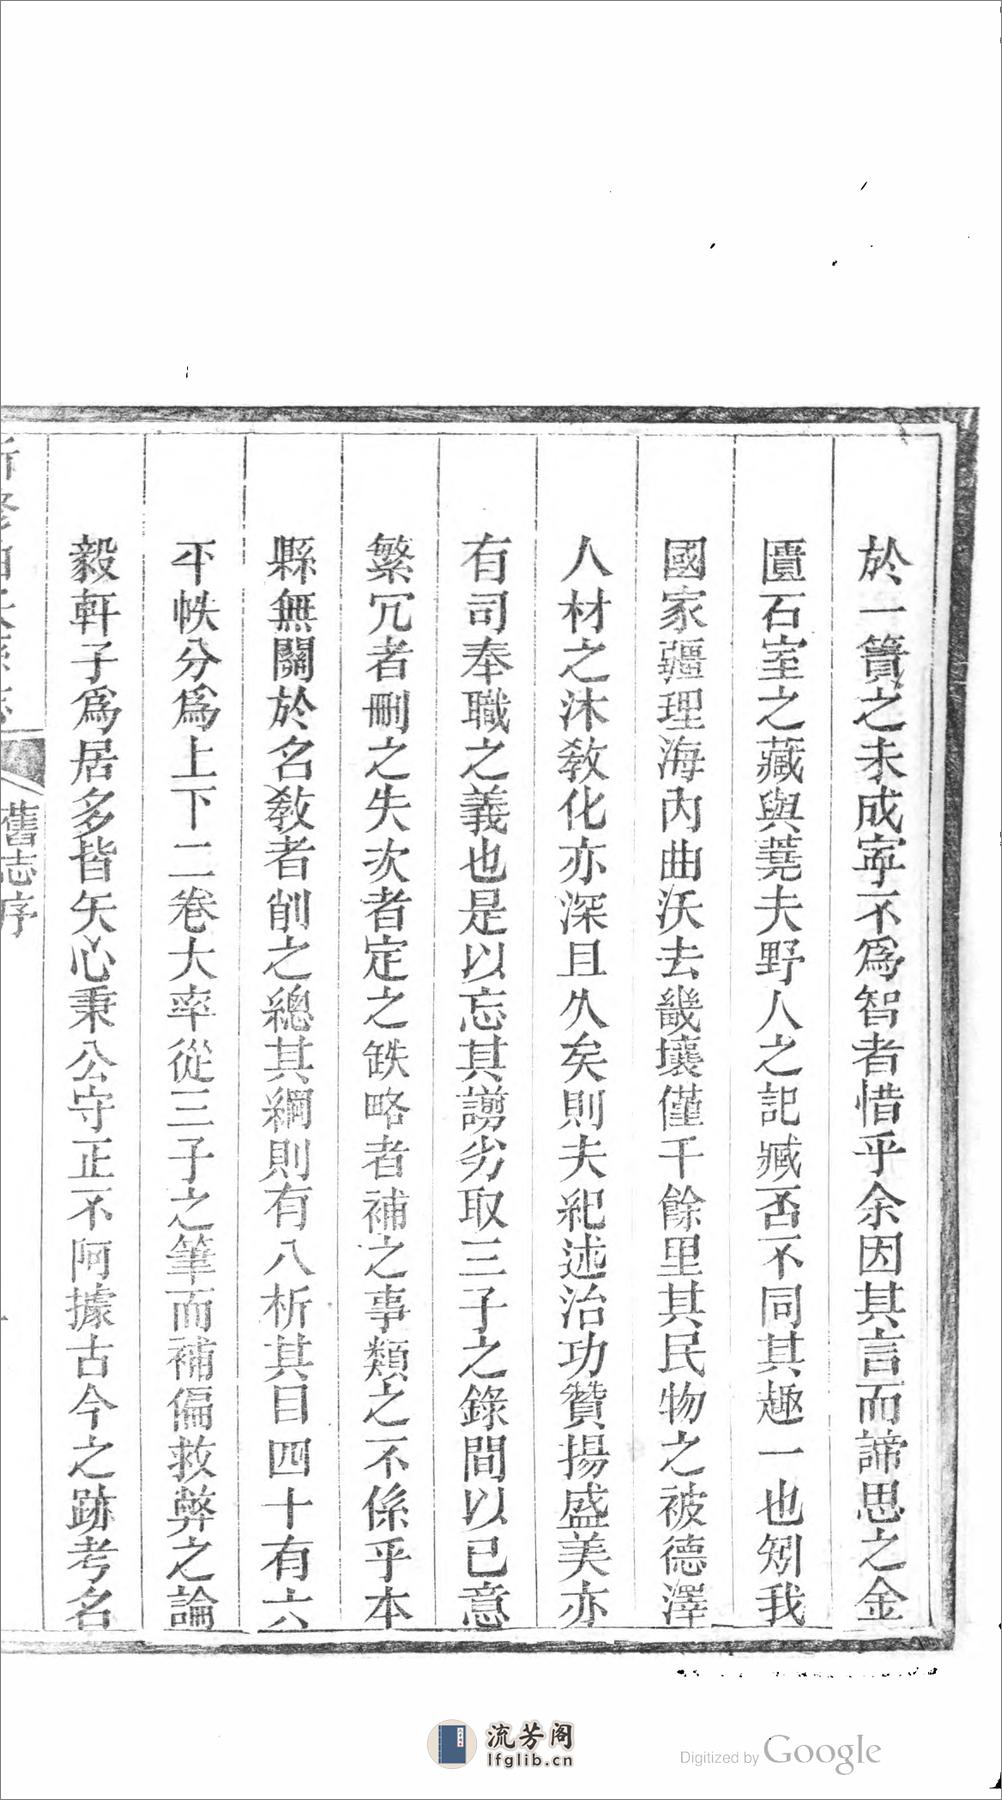 於一簣之未成寜不爲智者惜乎余因其言而諦思之金
匱石室之藏與蕘夫野人之記臧否不同其趣一也矧我
國家疆理海內曲沃去畿壤僅千餘里其民物之被德澤
人材之沐敎化亦深且久矣則夫紀述治功贊揚盛美亦
有司奉職之義也是以忘其謭劣取三子之錄間以已意
繁冗者刪之失次者定之缺略者補之事類之不係乎本
縣無關於名敎者削之總其綱則有八析其目四十有六
平帙分爲上下二卷大率從三子之筆而補偏救弊之論
毅軒子爲居多皆矢心秉公守正不阿據古今之跡考名
新修曲沃縣志
舊志序
流芳阁
lfglib.cn
Digitized by Google